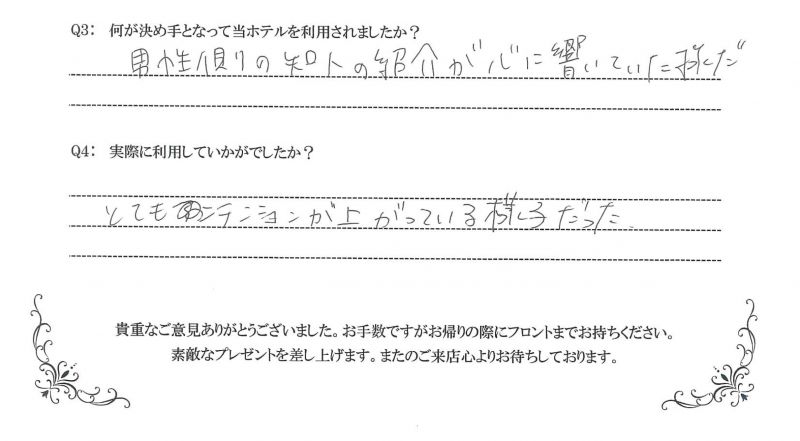 Q3: 何が決め手となって当ホテルを利用されましたか？
男性側りの知人の紹介が心に響いていた様だ
Q4: 実際に利用していかがでしたか？
とてもテンションが上がっている様子だった。
貴重なご意見ありがとうございました。お手数ですがお帰りの際にフロントまでお持ちください。
素敵なプレゼントを差し上げます。またのご来店心よりお待ちしております。